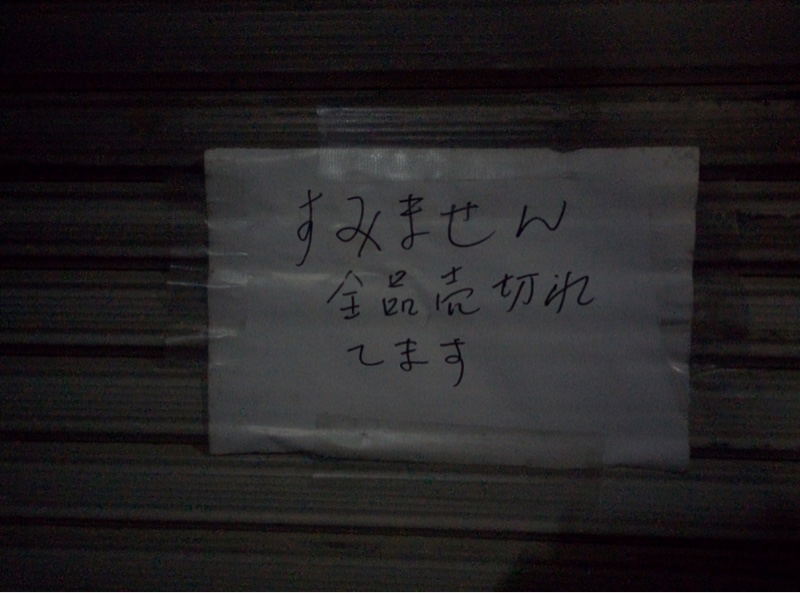 すみません
全品売切れ
てます